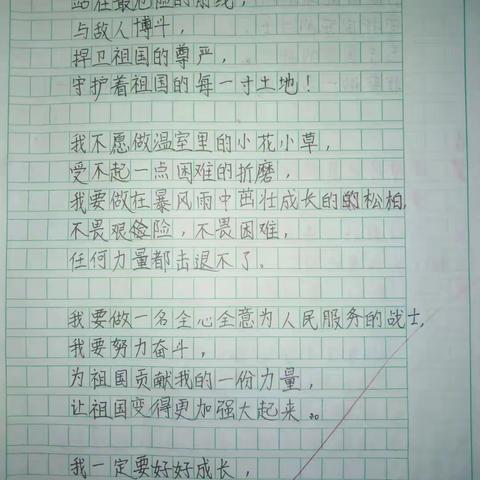 站在最危险的前线，
与敌人博斗，
捍卫祖国的尊严，
守护着祖国的每一寸土地！
我不愿做温室里的小花小草，
受不起一点困难的折磨，
我要做在暴风雨中茁壮成长的松柏，
不畏艰险，不畏困难，
任何力量都击退不了。
我要做一名全心全意为人民服务的战士，
我要努力奋斗，
为祖国贡献我的一份力量，
让祖国变得更加强大起来。
我一定要好好成长，